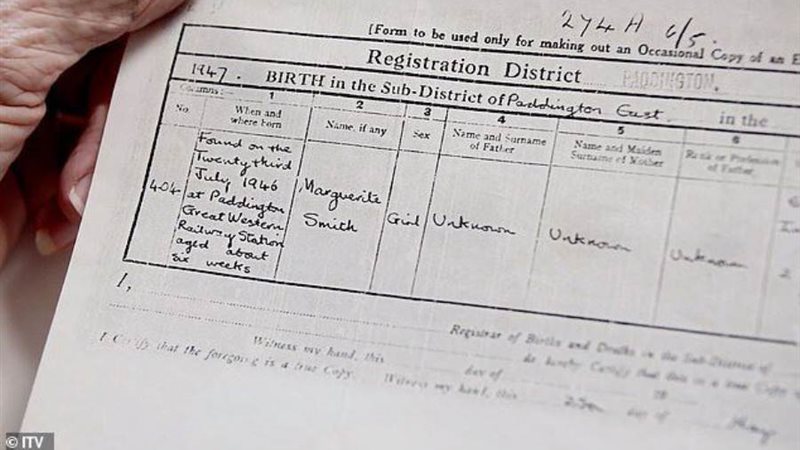 274 A 6/5.
[Form to be used only for making out an Occasional Copy of an E
Registration District PADDINGTON.
1947. BIRTH in the Sub-District of Paddington East in the
Columns:— 1 2 3 4 5 6
No. When and where Born Name, if any Sex Name and Surname of Father Name and Maiden Surname of Mother Rank or Profession of Father
404 Found on the Twenty third July, 1946 at Paddington Great Western Railway Station aged about six weeks Marguerite Smith Girl Unknown Unknown Unknown
I, Registrar of Births and Deaths in the Sub-District of
do hereby Certify that this is a true Copy
Witness my hand, this day of 19
I Certify that the foregoing is a true Copy. Witness my hand, this day of May
© ITV